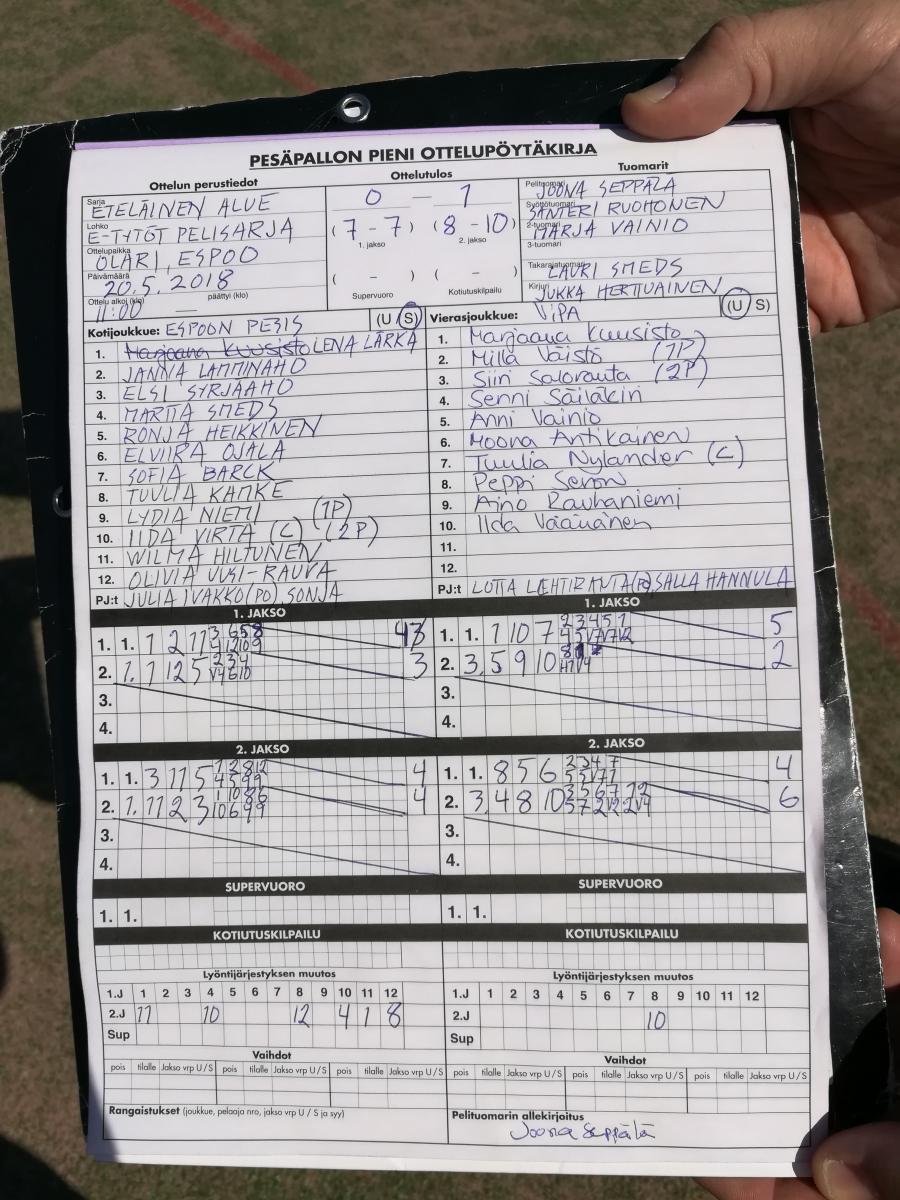 PESÄPALLON PIENI OTTELUPÖYTÄKIRJA
Ottelun perustiedot
Sarja
ETELÄINEN ALUE
Lohko
E-TYTÖT PELISARJA
Ottelupaikka
OLARI, ESPOO
Päivämäärä
20.5.2018
Ottelu alkoi (klo) päättyi (klo)
11:00 —
Ottelutulos
0 — 1
(7 - 7) (8 - 10)
1. jakso 2. jakso
( - ) ( - )
Supervuoro Kotiutuskilpailu
Tuomarit
Pelituomari
JOONA SEPPÄLÄ
Syöttötuomari
SANTERI RUOHONEN
2-tuomari
MARJA VAINIO
3-tuomari
Takarajatuomari
LAURI SMEDS
Kirjuri
JUKKA HERTTUAINEN
Kotijoukkue: ESPOON PESIS (U S)
1. Marjaana Kuusisto LENA LÄRKA
2. JANNA LAMMINAHO
3. ELSI SYRJÄAHO
4. MARTTA SMEDS
5. RONJA HEIKKINEN
6. ELVIIRA OJALA
7. SOFIA BARCK
8. TUULIA KAMKE
9. LYDIA NIEMI (1P)
10. IIDA VIRTA (C) (2P)
11. WILMA HILTUNEN
12. OLIVIA UUSI-RAUVA
PJ:t JULIA IVAKKO (PO) SONJA
Vierasjoukkue: ViPA (U S)
1. Marjaana Kuusisto
2. Milla Väistö (1P)
3. Siiri Salorauta (2P)
4. Senni Säiläkin
5. Anni Vainio
6. Moona Antikainen
7. Tuulia Nylander (C)
8. Peppi Seron
9. Aino Rauhaniemi
10. Ilda Väänänen
11.
12.
PJ:t LOTTA LEHTIRANTA (PO), SALLA HANNULA
1. JAKSO
1. 1. 1 2 11 3
2. 1. 1 12 5 2 3 4 V4 6 10 3
3.
4.
1. JAKSO
1. 1. 1 10 7 2 3 4 5 1 5
2. 3. 5 9 10 2
3.
4.
2. JAKSO
1. 1. 3 11 5 1 2 8 12 4 5 9 9 4
2. 1. 11 2 3 4
3.
4.
2. JAKSO
1. 1. 8 5 6 2 3 4 7 4
2. 3. 4 8 10 3 5 6 7 12 6
3.
4.
SUPERVUORO
1. 1.
SUPERVUORO
1. 1.
KOTIUTUSKILPAILU
KOTIUTUSKILPAILU
Lyöntijärjestyksen muutos
1.J 1 2 3 4 5 6 7 8 9 10 11 12
2.J 11 10 12 4 1 8
Sup
Lyöntijärjestyksen muutos
1.J 1 2 3 4 5 6 7 8 9 10 11 12
2.J 10
Sup
Vaihdot
pois tilalle Jakso vrp U / S pois tilalle Jakso vrp U / S pois tilalle Jakso vrp U / S
Vaihdot
pois tilalle Jakso vrp U / S pois tilalle Jakso vrp U / S pois tilalle Jakso vrp U / S
Rangaistukset (joukkue, pelaaja nro, jakso vrp U / S ja syy)
Pelituomarin allekirjoitus
Joona Seppälä